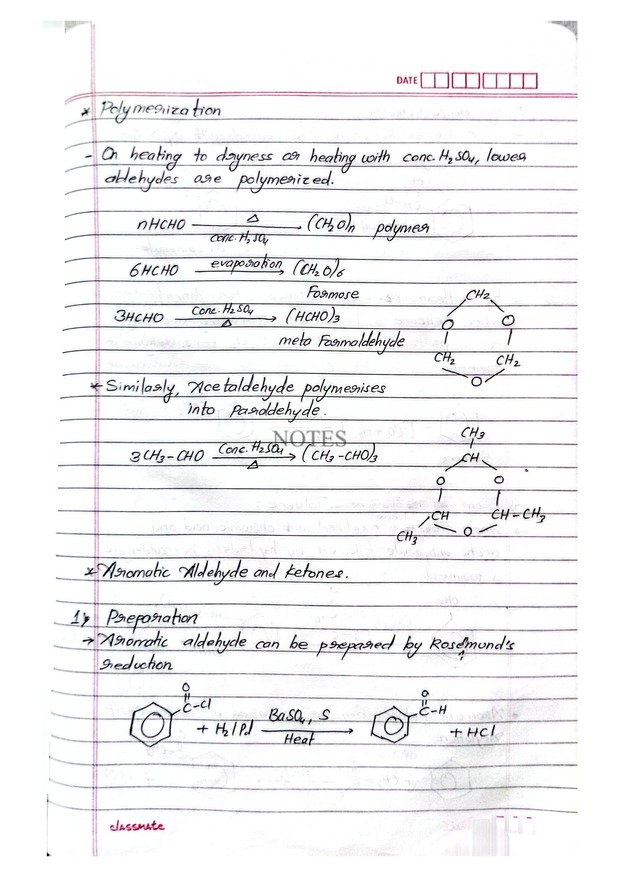 DATE
* Polymerization
- On heating to dryness or heating with conc. H₂SO₄, lower
aldehydes are polymerized.
nHCHO —Δ / conc. H₂SO₄→ (CH₂O)n polymer
6HCHO —evaporation→ (CH₂O)6
Formose
3HCHO —Conc. H₂SO₄ / Δ→ (HCHO)3
meta Formaldehyde
CH₂
O O
CH₂ CH₂
O
* Similarly, Acetaldehyde polymerises
into Paraldehyde.
NOTES
3CH₃-CHO —Conc. H₂SO₄ / Δ→ (CH₃-CHO)3
CH₃
CH
O O
CH CH-CH₃
CH₃ O
* Aromatic Aldehyde and ketones.
1) Preparation
→ Aromatic aldehyde can be prepared by Rosemund's
reduction
O
C-Cl + H₂/Pd —BaSO₄, S / Heat→ O
C-H + HCl
classmate